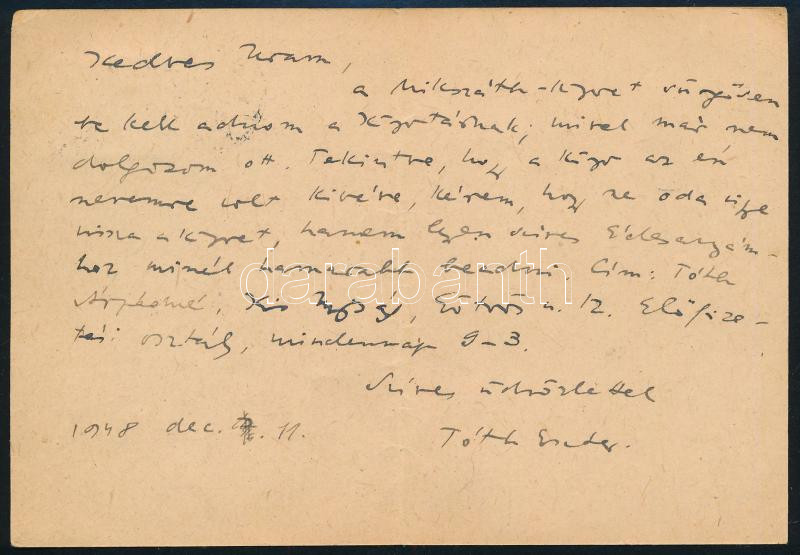 Kedves Uram,
a Mikszáth-könyvet sürgősen
be kell adnom a Könyvtárnak, mivel már nem
dolgozom ott. Tekintve, hogy a könyv az én
nevemre volt kivéve, kérem, hogy ne oda vigye
vissza a könyvet, hanem legyen szíves Édesanyám-
hoz minél hamarabb beadni. Cím: Tóth
Árpádné, Kis Újság, Eötvös u. 12. Előfize-
tési osztály, mindennap 9–3.
Szíves üdvözlettel
1948 dec. 11.
Tóth Eszter.
darabanth